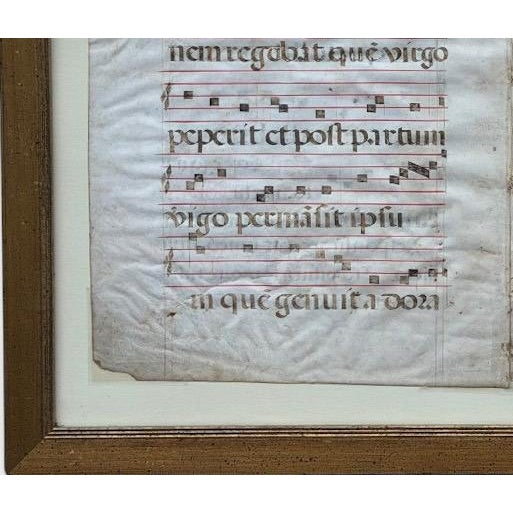 nem regebat quē virgo
peperit et post partum
virgo permāsit ipsu
m quē genuit adora